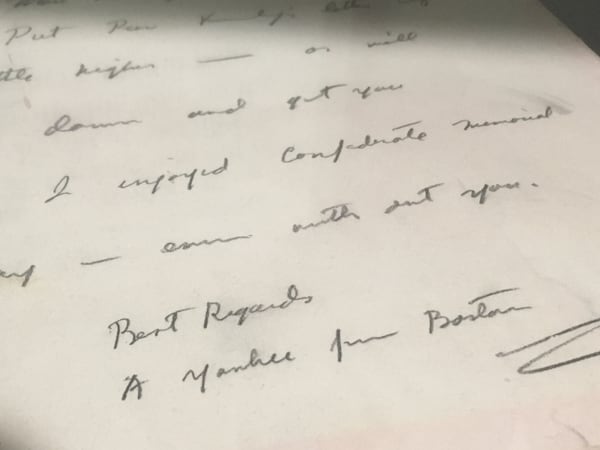 Put Pew Kennedy's letter
higher — or will
down and get you
I enjoyed Confederate memorial
— even without you.
Best Regards
A Yankee from Boston